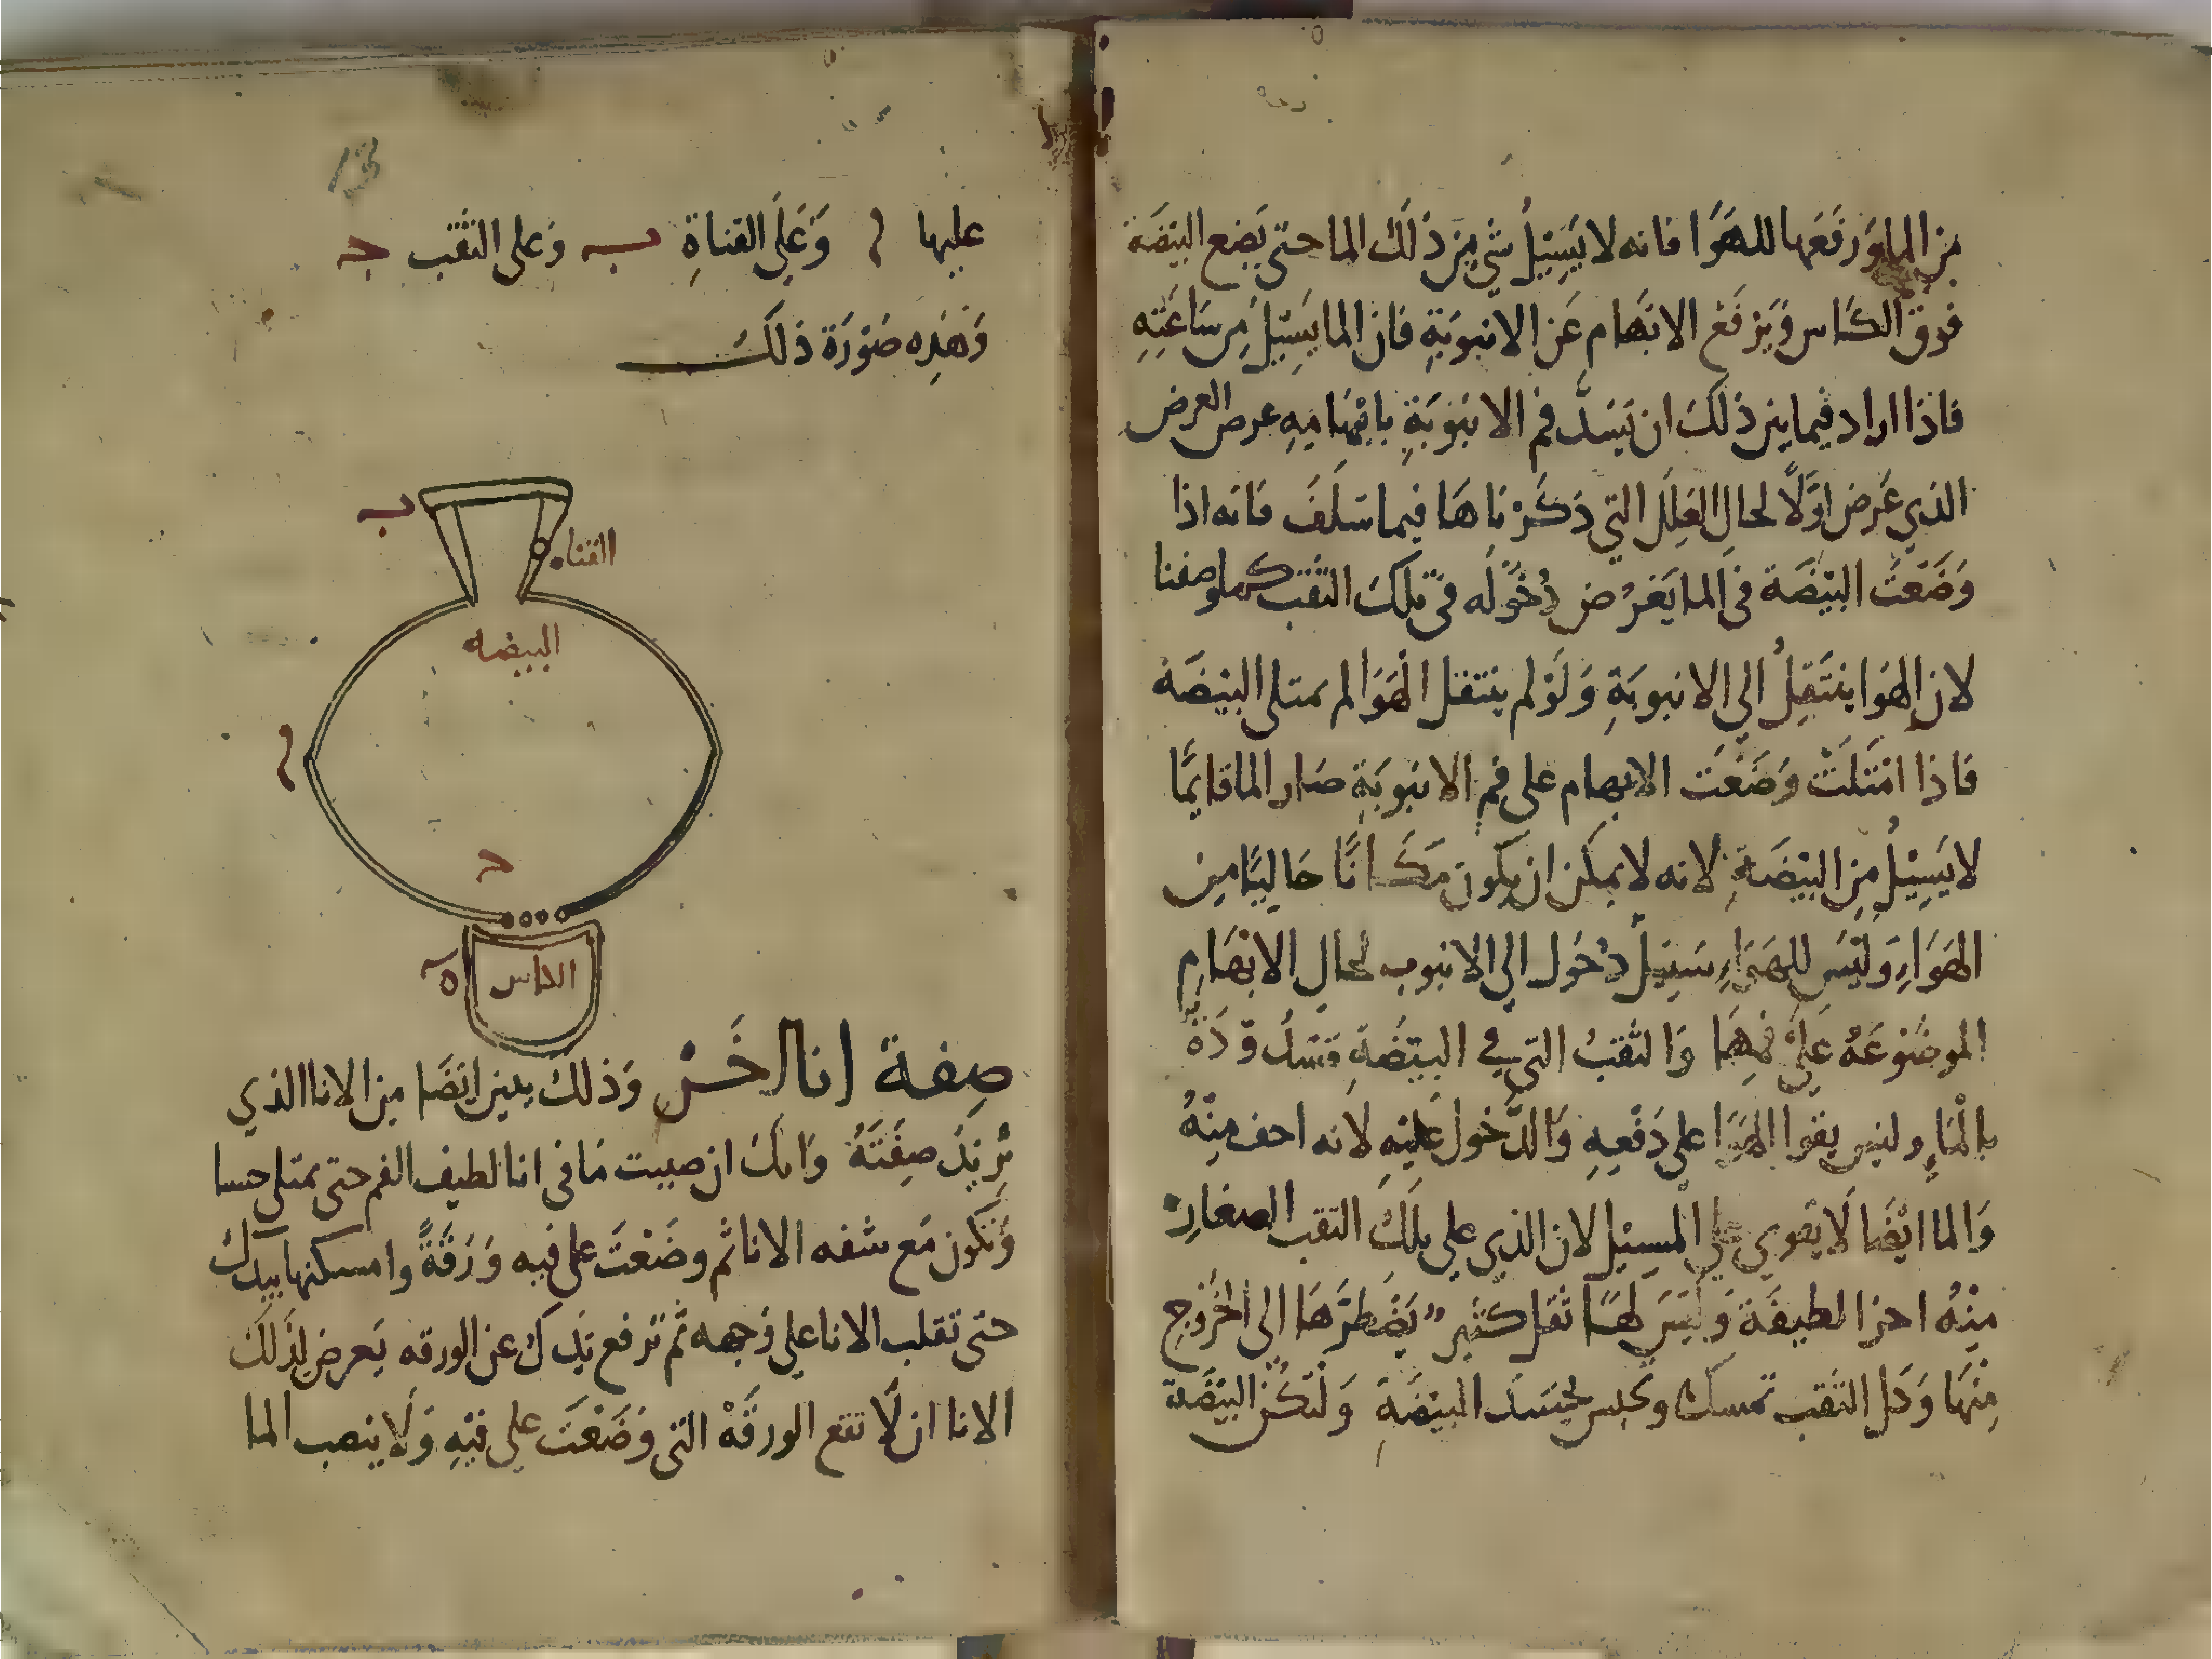 من الما ورفعها للهوا فانه لا يسيل شي من ذلك الما حتى يضع البيضة
فوق الكاس ويرفع الابهام عن الانبوبة فان الما يسيل من ساعته
فاذا اراد فيما بين ذلك ان يسد فم الانبوبة بابهامه عرض العرض
الذي عرض اولا لحال العلل التي ذكرناها فيما سلف فانه اذا
وضعت البيضة في الما يعرض دخوله في تلك الثقب كما وصفنا
لان الهوا ينتقل الى الانبوبة ولو لم ينتقل الهوا لم تمتلى البيضة
فاذا امتلت وضعت الابهام على فم الانبوبة صار الما قايما
لا يسيل من البيضة لانه لا يمكن ان يكون مكانا خاليا من
الهواء وليس للهواء سبيل دخول الى الانبوب لحال الابهام
الموضوعة على فمها والثقب التي في البيضة
بالماء وليس يقوا الهوا على دفعه والدخول عليه لانه اخف منه
والما ايضا لا يقوي على المسيل لان الذي على تلك الثقب الصغار
منه اجزا لطيفة وليس لها ثقل كثير يضطرها الى الخروج
منها وكل الثقب تمسك وتحبس البيضة ولتكن البيضة
13
عليها ا وعلى القناة ب وعلى الثقب ج
وهذه صورة ذلك
ب
القناه
البيضه
ا
ح
الكاس
ه
صفة انا اخر وذلك يبين ايضا من الانا الذي
نريد صفته وانك ان صببت ما في انا لطيف الفم حتى يمتلى حسا
وتكون مع شفه الانا ثم وضعت على فيه ورقة وامسكتها بيدك
حتى تقلب الانا على وجهه ثم ترفع يدك عن الورقه يعرض لذلك
الانا ان لا تقع الورقة التي وضعت على فيه ولا ينصب الما